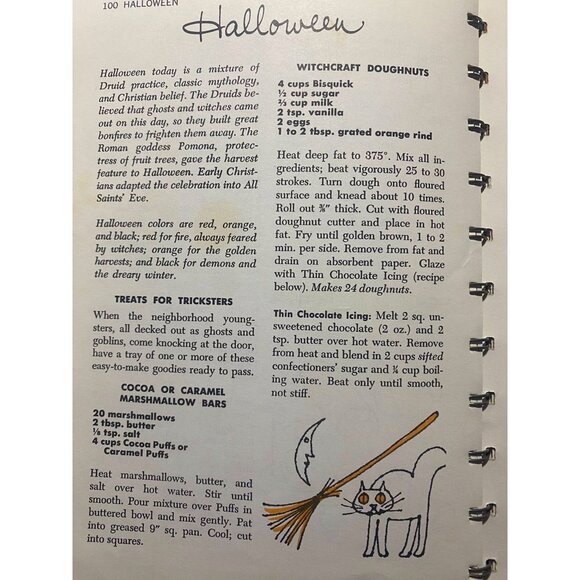 100 HALLOWEEN
Halloween
Halloween today is a mixture of
Druid practice, classic mythology,
and Christian belief. The Druids be-
lieved that ghosts and witches came
out on this day, so they built great
bonfires to frighten them away. The
Roman goddess Pomona, protec-
tress of fruit trees, gave the harvest
feature to Halloween. Early Christ-
ians adapted the celebration into All
Saints' Eve.
Halloween colors are red, orange,
and black; red for fire, always feared
by witches; orange for the golden
harvests; and black for demons and
the dreary winter.
TREATS FOR TRICKSTERS
When the neighborhood young-
sters, all decked out as ghosts and
goblins, come knocking at the door,
have a tray of one or more of these
easy-to-make goodies ready to pass.
COCOA OR CARAMEL
MARSHMALLOW BARS
20 marshmallows
2 tbsp. butter
⅛ tsp. salt
4 cups Cocoa Puffs or
Caramel Puffs
Heat marshmallows, butter, and
salt over hot water. Stir until
smooth. Pour mixture over Puffs in
buttered bowl and mix gently. Pat
into greased 9" sq. pan. Cool; cut
into squares.
WITCHCRAFT DOUGHNUTS
4 cups Bisquick
½ cup sugar
⅔ cup milk
2 tsp. vanilla
2 eggs
1 to 2 tbsp. grated orange rind
Heat deep fat to 375°. Mix all in-
gredients; beat vigorously 25 to 30
strokes. Turn dough onto floured
surface and knead about 10 times.
Roll out ⅜" thick. Cut with floured
doughnut cutter and place in hot
fat. Fry until golden brown, 1 to 2
min. per side. Remove from fat and
drain on absorbent paper. Glaze
with Thin Chocolate Icing (recipe
below). Makes 24 doughnuts.
Thin Chocolate Icing: Melt 2 sq. un-
sweetened chocolate (2 oz.) and 2
tsp. butter over hot water. Remove
from heat and blend in 2 cups sifted
confectioners' sugar and ¼ cup boil-
ing water. Beat only until smooth,
not stiff.